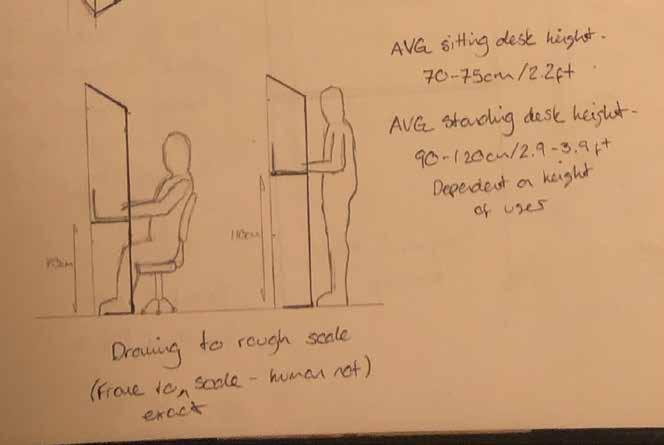 AVG sitting desk height -
70-75cm/2.2ft
AVG standing desk height -
90-120cm/2.9-3.9ft
Dependent on height
of user
110cm
Drawing to rough scale
(Frame to scale - human not)
exact